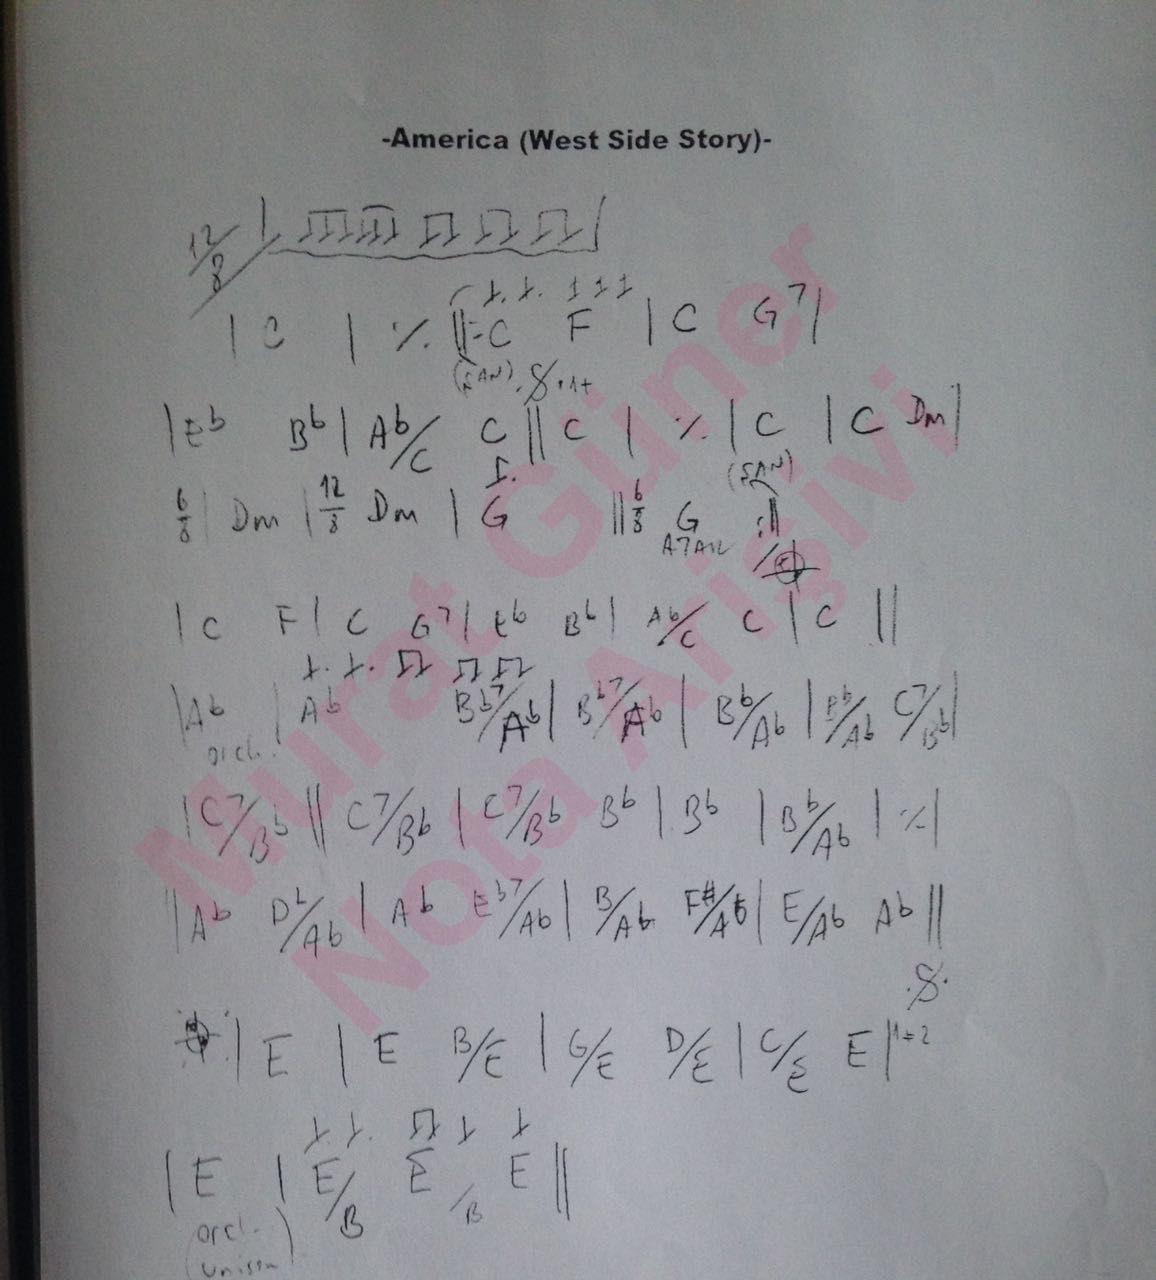 -America (West Side Story)-
12/8
| C | ٪ ||: C F | C G7 |
(ŞAN) .S. 1+
| Eb Bb | Ab/C C || C | ٪ | C | C Dm |
(ŞAN)
6/8 | Dm | 12/8 Dm | G || 6/8 G :||
| C F | C G7 | Eb Bb | Ab/C C | C ||
| Ab | Ab Bb7/Ab | Bb7/Ab | Bb/Ab | Bb/Ab C7/Bb |
orch.
| C7/Bb || C7/Bb | C7/Bb Bb | Bb | Bb/Ab | ٪ |
| Ab Db/Ab | Ab Eb7/Ab | B/Ab F#/Ab | E/Ab Ab ||
.S.
| E | E B/E | G/E D/E | C/E E | 1+2
| E | E/B E /B E ||
(orch. unison)
Murat Güner
Nota Arşivi